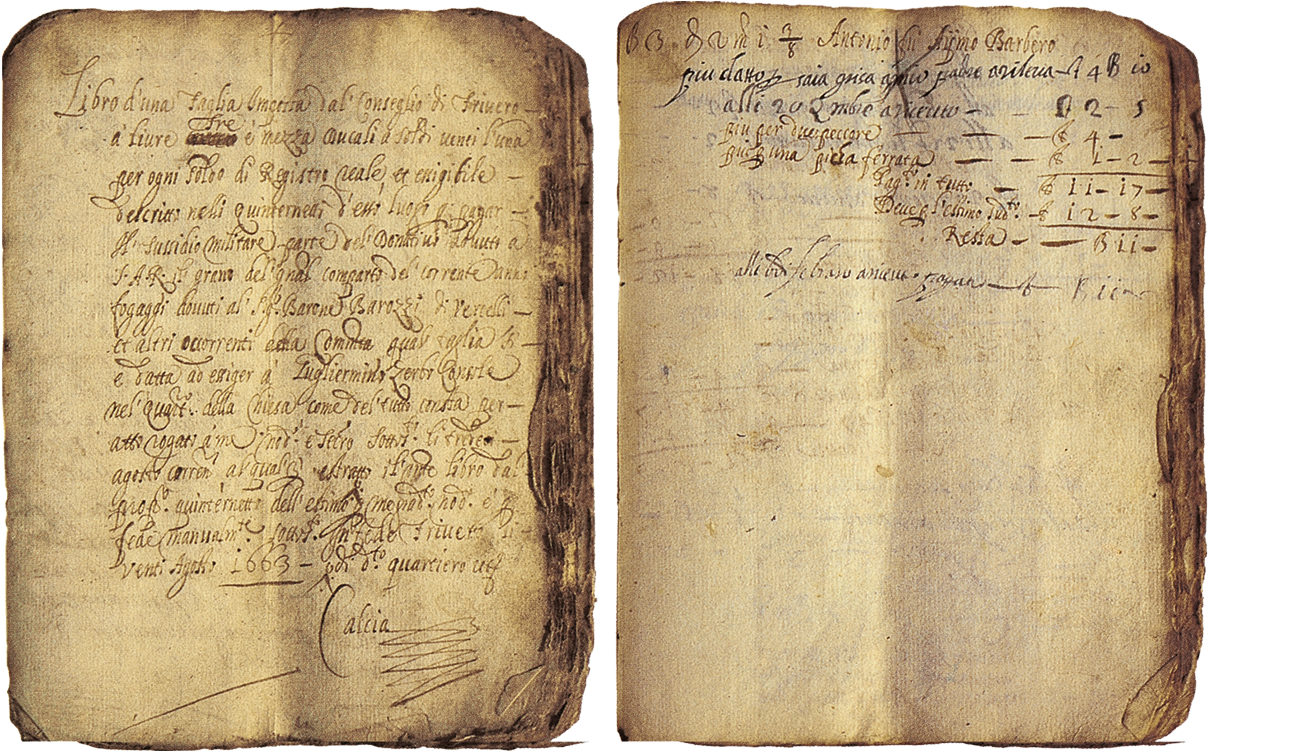 Libro d'una Taglia Imposta dal Conseglio di Trivero
a livre tre e mezza Ducali a soldi venti l'una
per ogni soldo di Registro reale et essigibile
descritto nelli quinternetti d'esso luogo p. pagar
il sussidio militare parte del Donativo dovuto a
S.A.R. il grano del qual comparto del corrente anno
fogaggi dovuti al Sig.r Barone Barozzi di Vercelli
et altri occorrenti della Comm.ta qual taglia
e datta ad essiger a Gugliermino Zerbi Console
nel quart.o della Chiesa come del tutto consta per
atto rogato a me nod.o e Seg.ro sott.o li tredeci
agosto corren.e al qual estratto il p.nte libro dal
prop.o quinternetto dell'estimo p. me nod.o e p.
fede manualm.te sott.o In fede Trivero li
venti Agosto 1663 di d.to quartiero
Calcia
63 2 m 1 3/8 Antonio fu Aijmo Barbero
piu datto saia grisa 4 10
alli 20 9mbre 2 5
piu per due peccore 4
piu p una ferrata 1 2
Pag.to in tutto 11 17
Deve p l'estimo sud.to 12 8
Resta 11
febraro 11